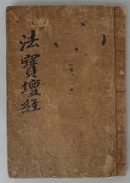 法寶壇經